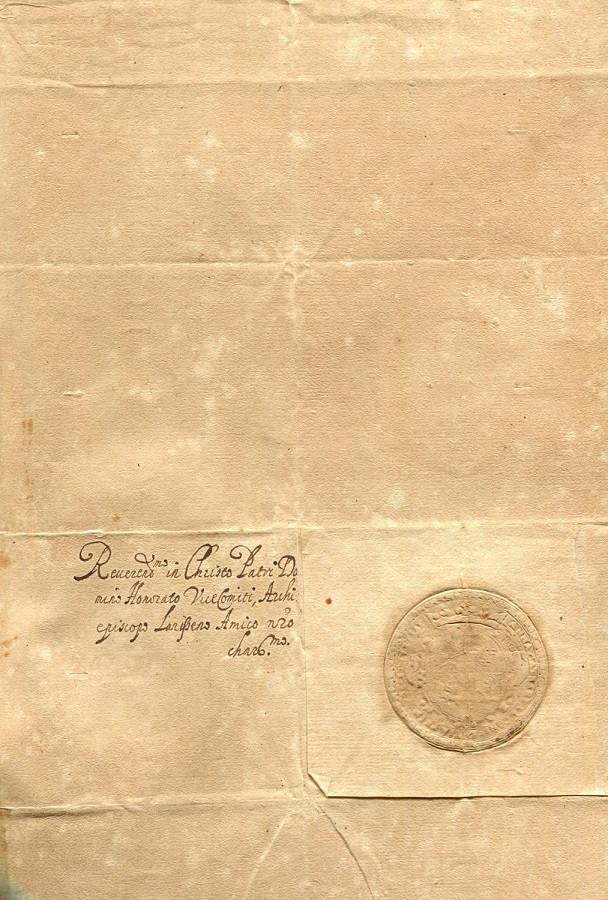 Reverendmo in Christo Patri Do
mino Honorato ViceComiti, Archi
episcopo Larißeno Amico nro
charmo.